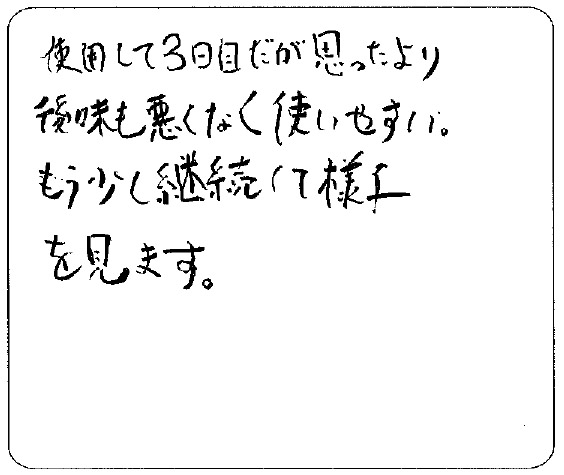 使用して3日目だが思ったより
後味も悪くなく使いやすい。
もう少し継続して様子
を見ます。